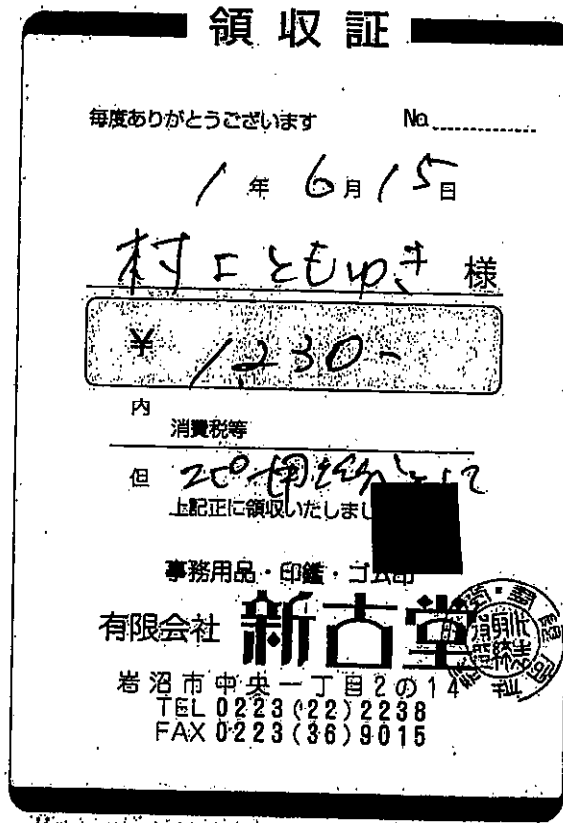 領収証
毎度ありがとうございます No.
1年6月15日
村上ともゆき 様
¥1,230-
内
消費税等
但 コピー用紙分として
上記正に領収いたしまし
事務用品・印鑑・ゴム印
有限会社 新古堂
岩沼市中央一丁目2の14
TEL 0223(22)2238
FAX 0223(36)9015